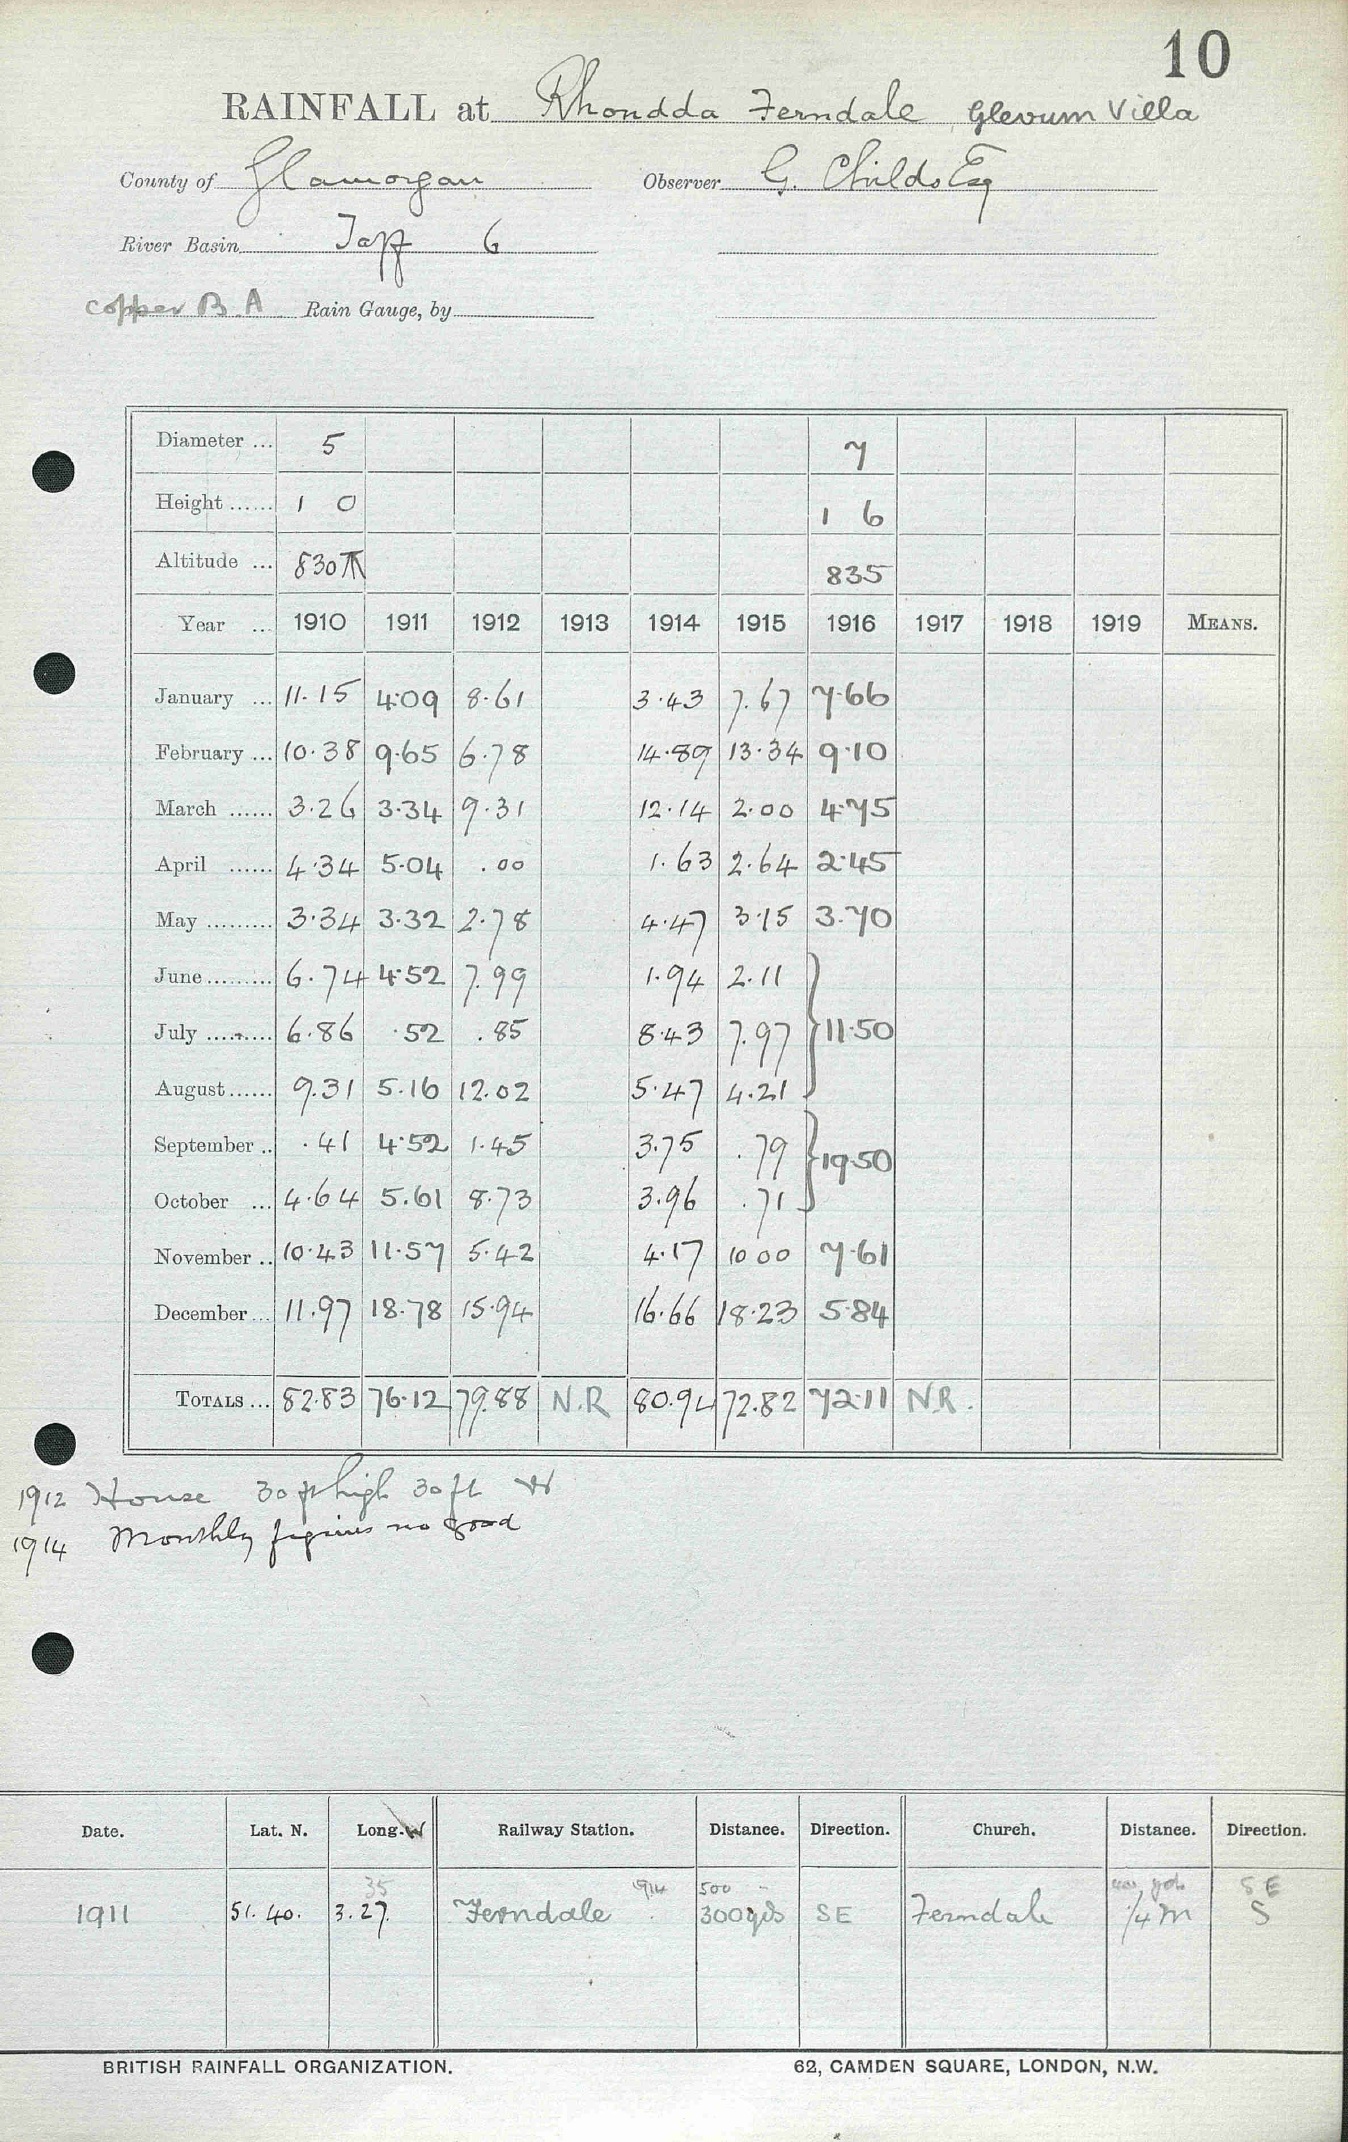 10
RAINFALL at Rhondda Ferndale Glevum Villa
County of Glamorgan Observer G. Childs Esq
River Basin Taff 6
copper B A Rain Gauge, by
Diameter ... 5 7
Height ...... 1 0 1 6
Altitude ... 830 835
Year ... 1910 1911 1912 1913 1914 1915 1916 1917 1918 1919 MEANS.
January ... 11.15 4.09 8.61 3.43 7.67 7.66
February ... 10.38 9.65 6.78 14.89 13.34 9.10
March ...... 3.26 3.34 9.31 12.14 2.00 4.75
April ...... 4.34 5.04 .00 1.63 2.64 2.45
May ......... 3.34 3.32 2.78 4.47 3.15 3.70
June ......... 6.74 4.52 7.99 1.94 2.11
July ......... 6.86 .52 .85 8.43 7.97 11.50
August ...... 9.31 5.16 12.02 5.47 4.21
September .. .41 4.52 1.45 3.75 .79 19.50
October ... 4.64 5.61 8.73 3.96 .71
November .. 10.43 11.57 5.42 4.17 10 00 7.61
December ... 11.97 18.78 15.94 16.66 18.23 5.84
TOTALS ... 82.83 76.12 79.88 N.R 80.94 72.82 72.11 N.R.
1912 House 30 ft high 30 ft W
1914 Monthly figures no good
Date. Lat. N. Long. W Railway Station. Distance. Direction. Church. Distance. Direction.
35 1914 500 " yds SE
1911 51. 40. 3.27. Ferndale 300yds SE Ferndale 1/4 m S
BRITISH RAINFALL ORGANIZATION. 62, CAMDEN SQUARE, LONDON, N.W.